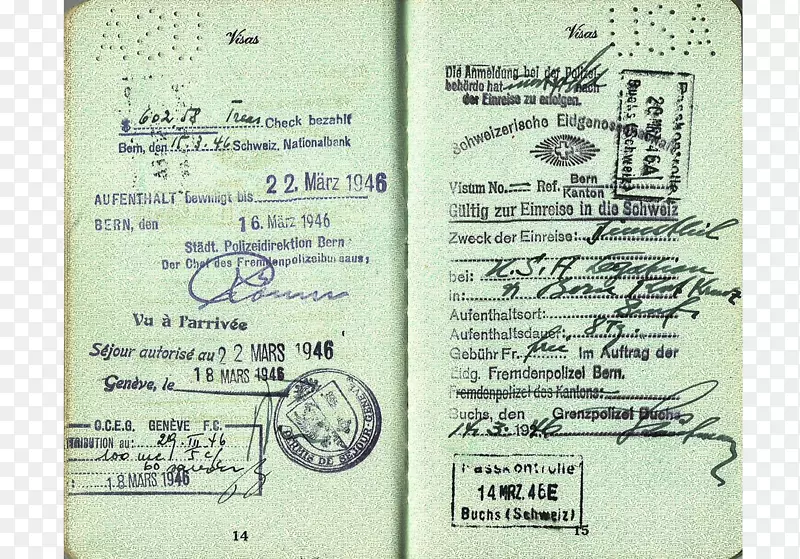 Visas
$ 602.58 Check bezahlt
Bern, den 15.3.46 Schweiz. Nationalbank
AUFENTHALT bewilligt bis 22. März 1946
BERN, den 16. März 1946
Städt. Polizeidirektion Bern
Der Chef des Fremdenpolizeibureaus;
Vu à l'arrivée
Séjour autorisé au 22 MARS 1946
Genève, le 18 MARS 1946
PERMIS DE SÉJOUR
O.C.E.G. GENÈVE F.C.
TRIBUTION au: 29. III 46
100
60
18 MARS 1946
14
Visas
Die Anmeldung bei der Polizei-
behörde hat nach
der Einreise zu erfolgen.
Passkontrolle
20 MRZ. 46 A
Buchs (Schweiz)
Schweizerische Eidgenossenschaft
Visum No. Ref. Bern
Kanton
Gültig zur Einreise in die Schweiz
Zweck der Einreise:
bei: U.S.A
in: Bern
Aufenthaltsort:
Aufenthaltsdauer: 8
Gebühr Fr. Im Auftrag der
Eidg. Fremdenpolizei Bern.
Fremdenpolizei des Kantons:
Buchs, den Grenzpolizei Buchs
14.3.1946
Passkontrolle
14 MRZ. 46 E
Buchs (Schweiz)
15